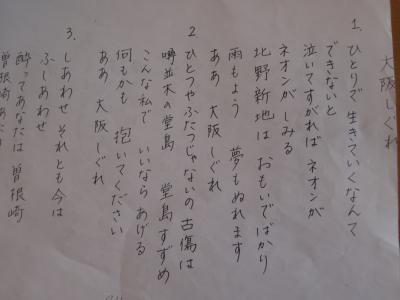 大阪しぐれ
1. ひとりで 生きていくなんて
できないと
泣いてすがれば ネオンが
ネオンが しみる
北野新地は おもいでばかり
雨もよう 夢もぬれます
ああ 大阪しぐれ
2. ひとつやふたつじゃないの 古傷は
噂並木の堂島 堂島すずめ
こんな私で いいならあげる
何もかも 抱いてください
ああ 大阪しぐれ
3. しあわせ それとも今は
ふしあわせ
酔ってあなたは 曽根崎
曽根崎あたり